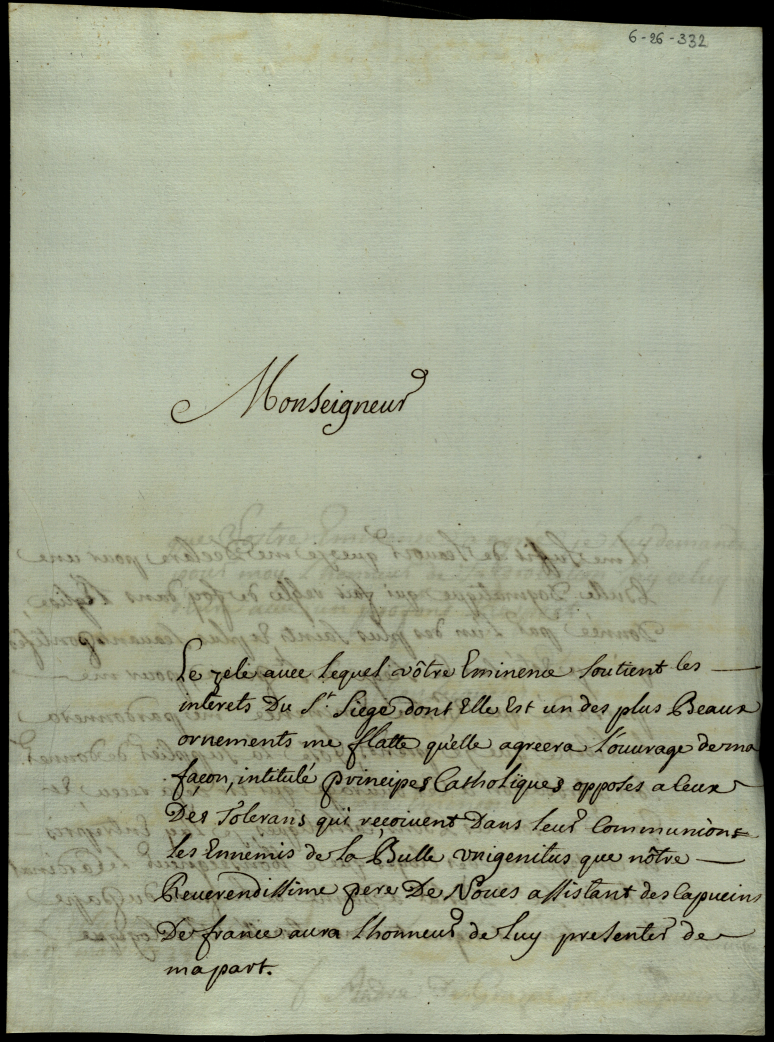 6-26-332
Monseigneur
Le zele avec lequel vôtre Eminence soutient les
intérets Du St. Siege dont Elle Est un des plus Beaux
ornements me flatte qu'elle agreera l'ouvrage de ma
façon, intitulé principes Catholiques opposes a ceux
Des Tolerans qui recoivent Dans leur Communion
les Ennemis de la Bulle unigenitus que nôtre
Reverendissime pere De Noves assistant des Capucins
De france aura l'honneur de luy presenter de
ma part.